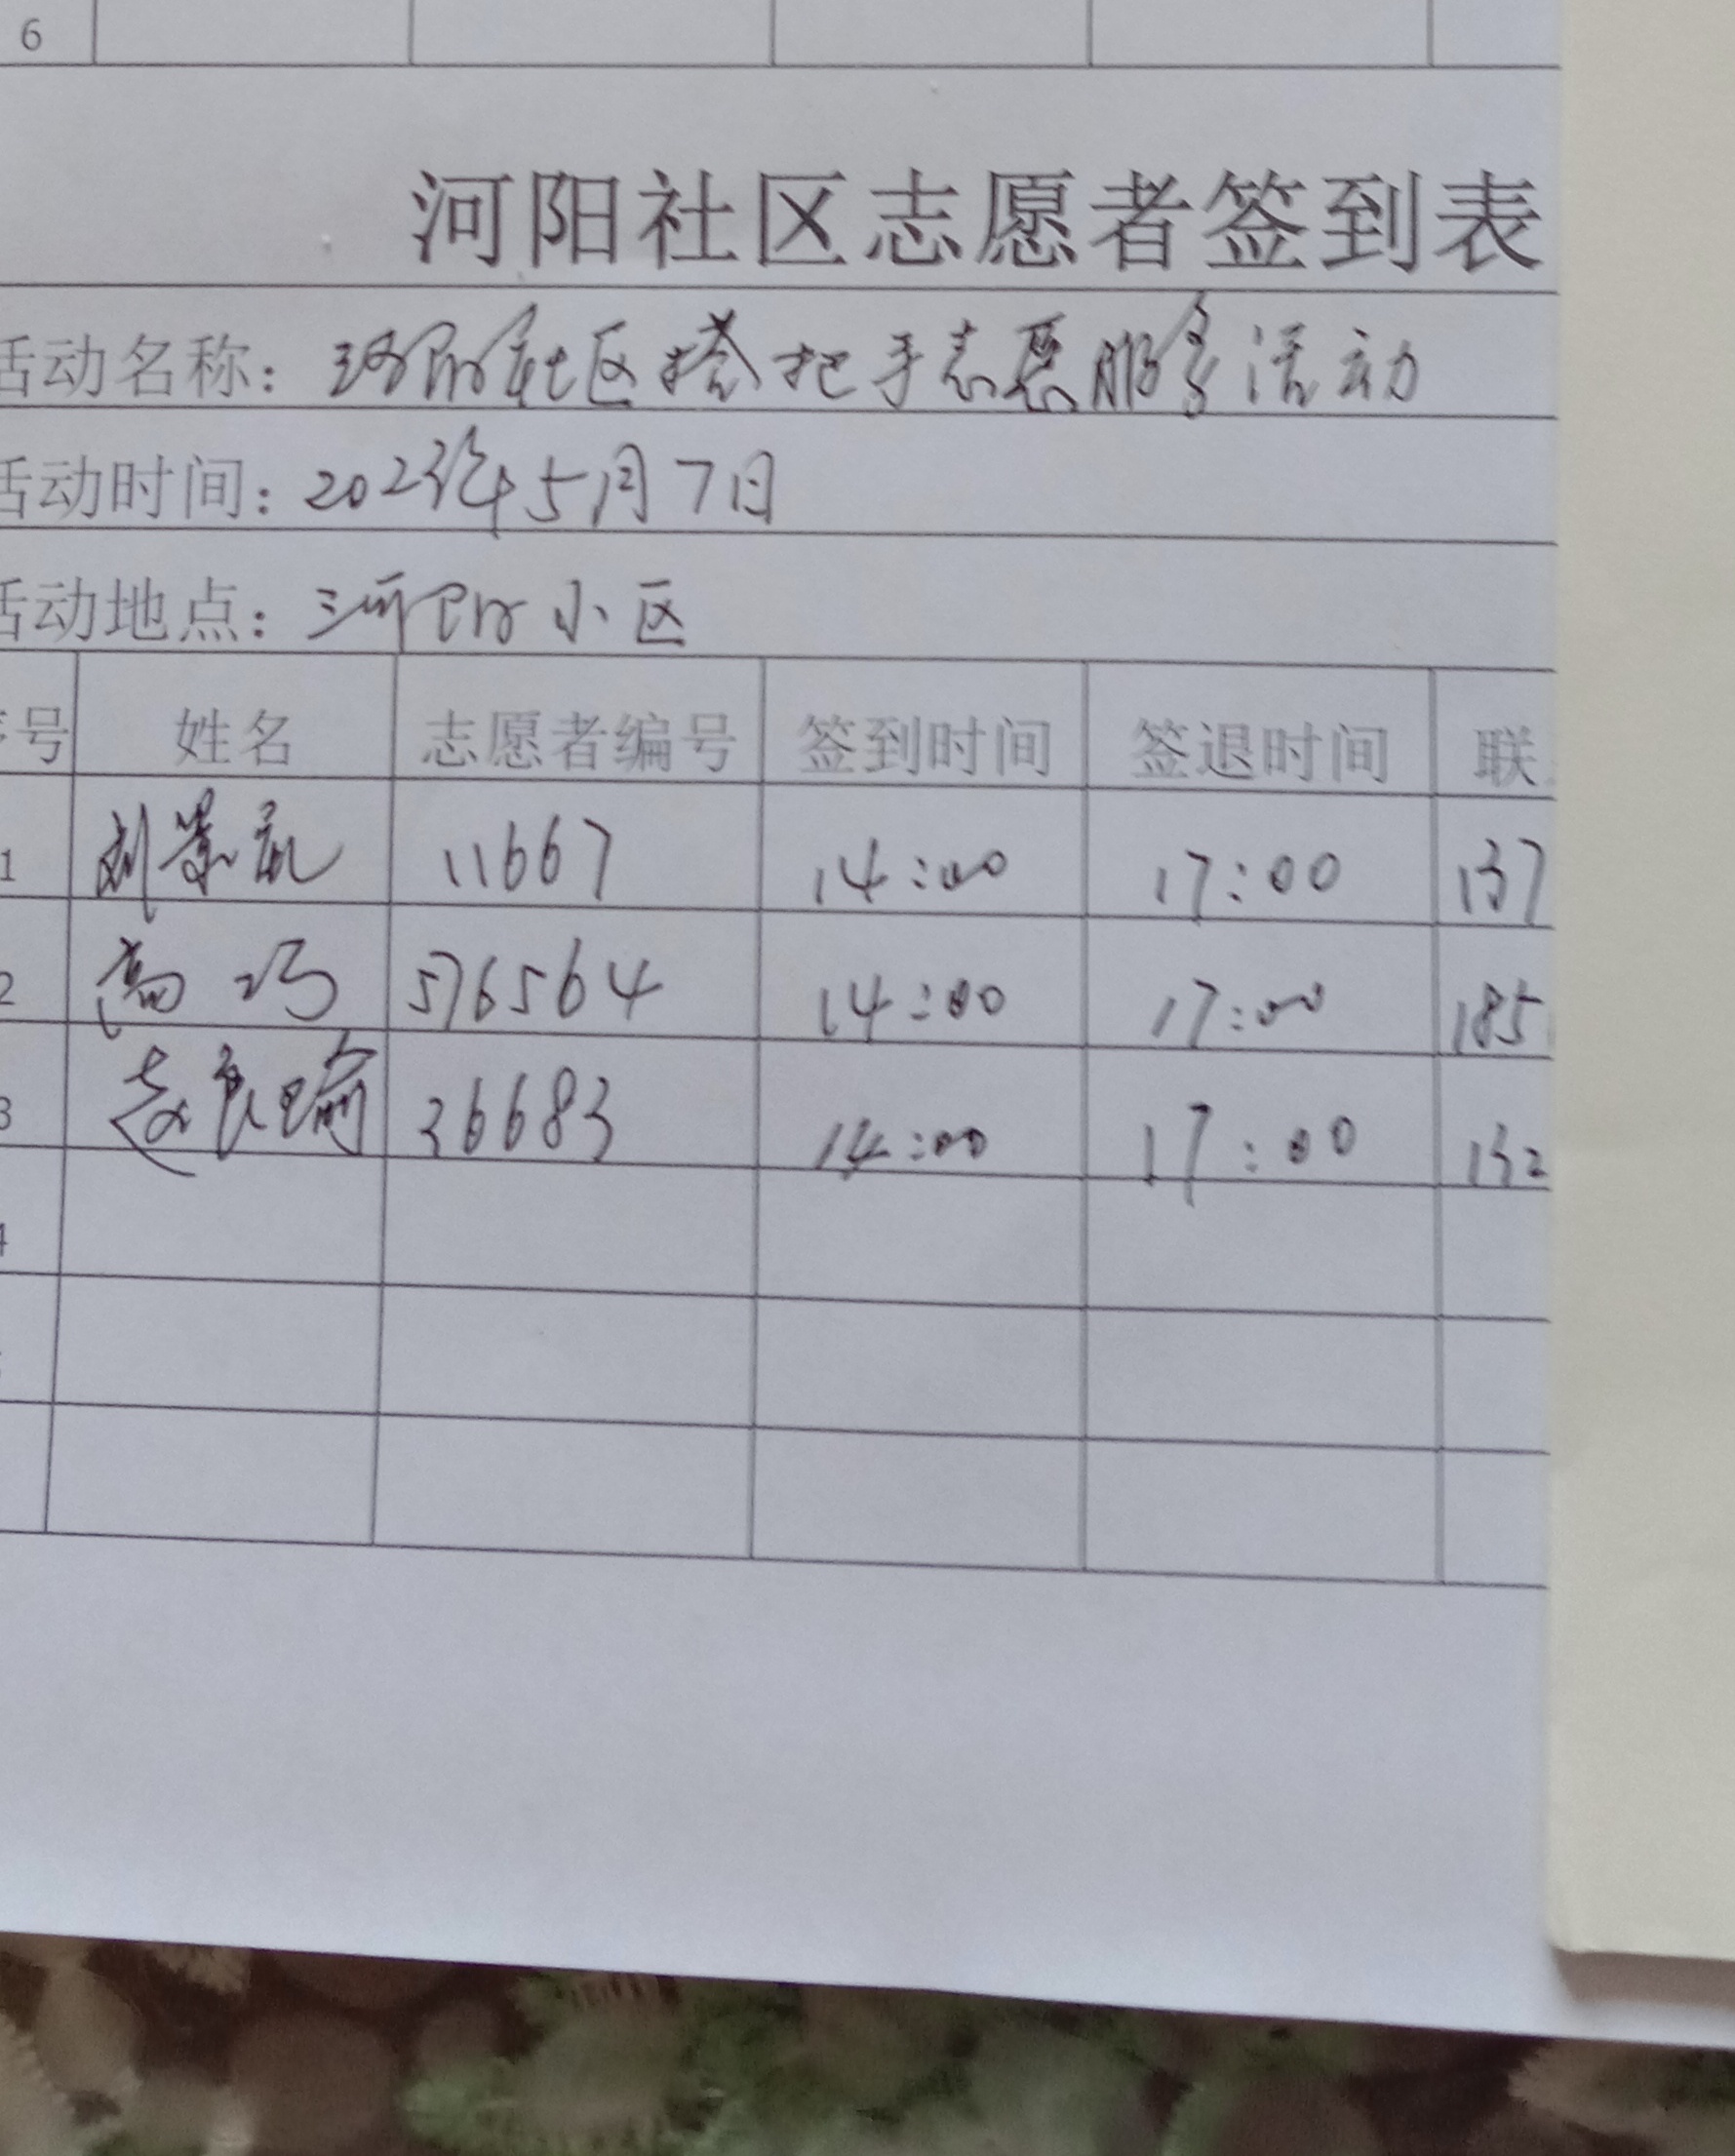 6
河阳社区志愿者签到表
活动名称：河阳社区搭把手志愿服务活动
活动时间：2023年5月7日
活动地点：河阳小区
序号 姓名 志愿者编号 签到时间 签退时间 联
1 刘景 11667 14:00 17:00 137
2 高巧 576564 14:00 17:00 185
3 赵良瑜 36683 14:00 17:00 132
4